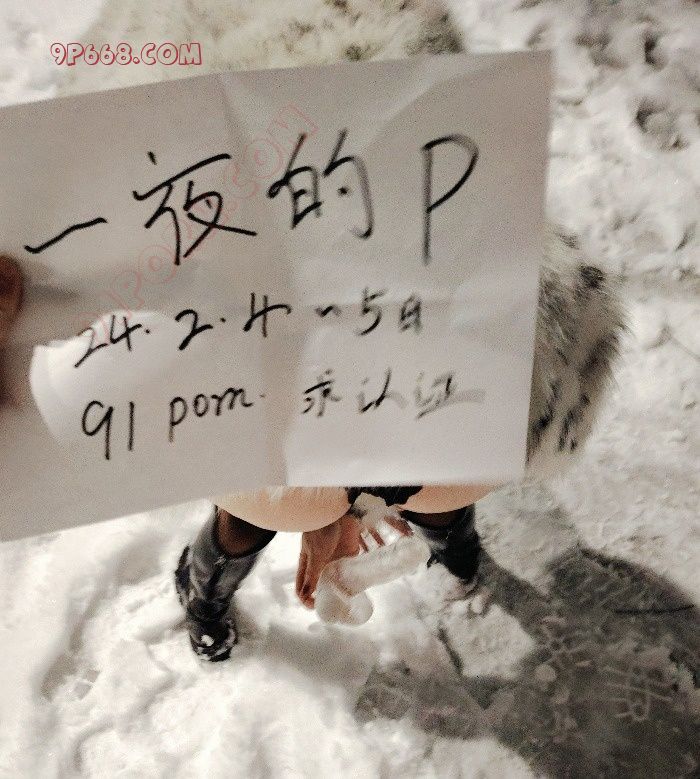 9P668.COM
一夜的P
24.2.4~5日
91 porn. 求认证